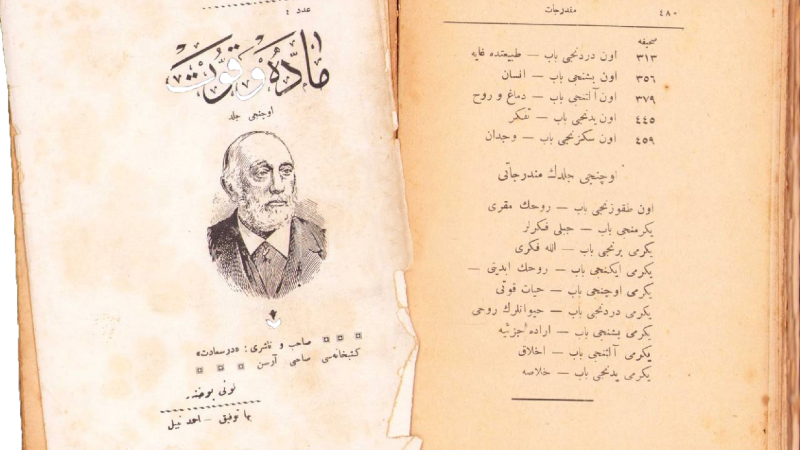 عدد ٤
ماده و قوت
اوچنجی جلد
صاحب و ناشری : «درسعادت»
كتبخانه‌سی صاحبی آرسن
لوئی بوخنر
بها توفيق — احمد نبيل
٤٨٠
مندرجات
صحيفه
٣١٣ اون دردنجی باب — طبيعتده غايه
٣٥٦ اون بشنجی باب — انسان
٣٧٩ اون آلتنجی باب — دماغ و روح
٤٤٥ اون يدنجی باب — تفكر
٤٥٩ اون سكزنجی باب — وجدان
اوچنجی جلدك مندرجاتی
اون طقوزنجی باب — روحك مقری
يكرمنجی باب — جبلی فكرلر
يكرمی برنجی باب — الله فكری
يكرمی ايكنجی باب — روحك ابديتی —
يكرمی اوچنجی باب — حيات قوتی
يكرمی دردنجی باب — حيوانلرك روحی
يكرمی بشنجی باب — اراده جزئيه
يكرمی آلتنجی باب — اخلاق
يكرمی يدنجی باب — خلاصه